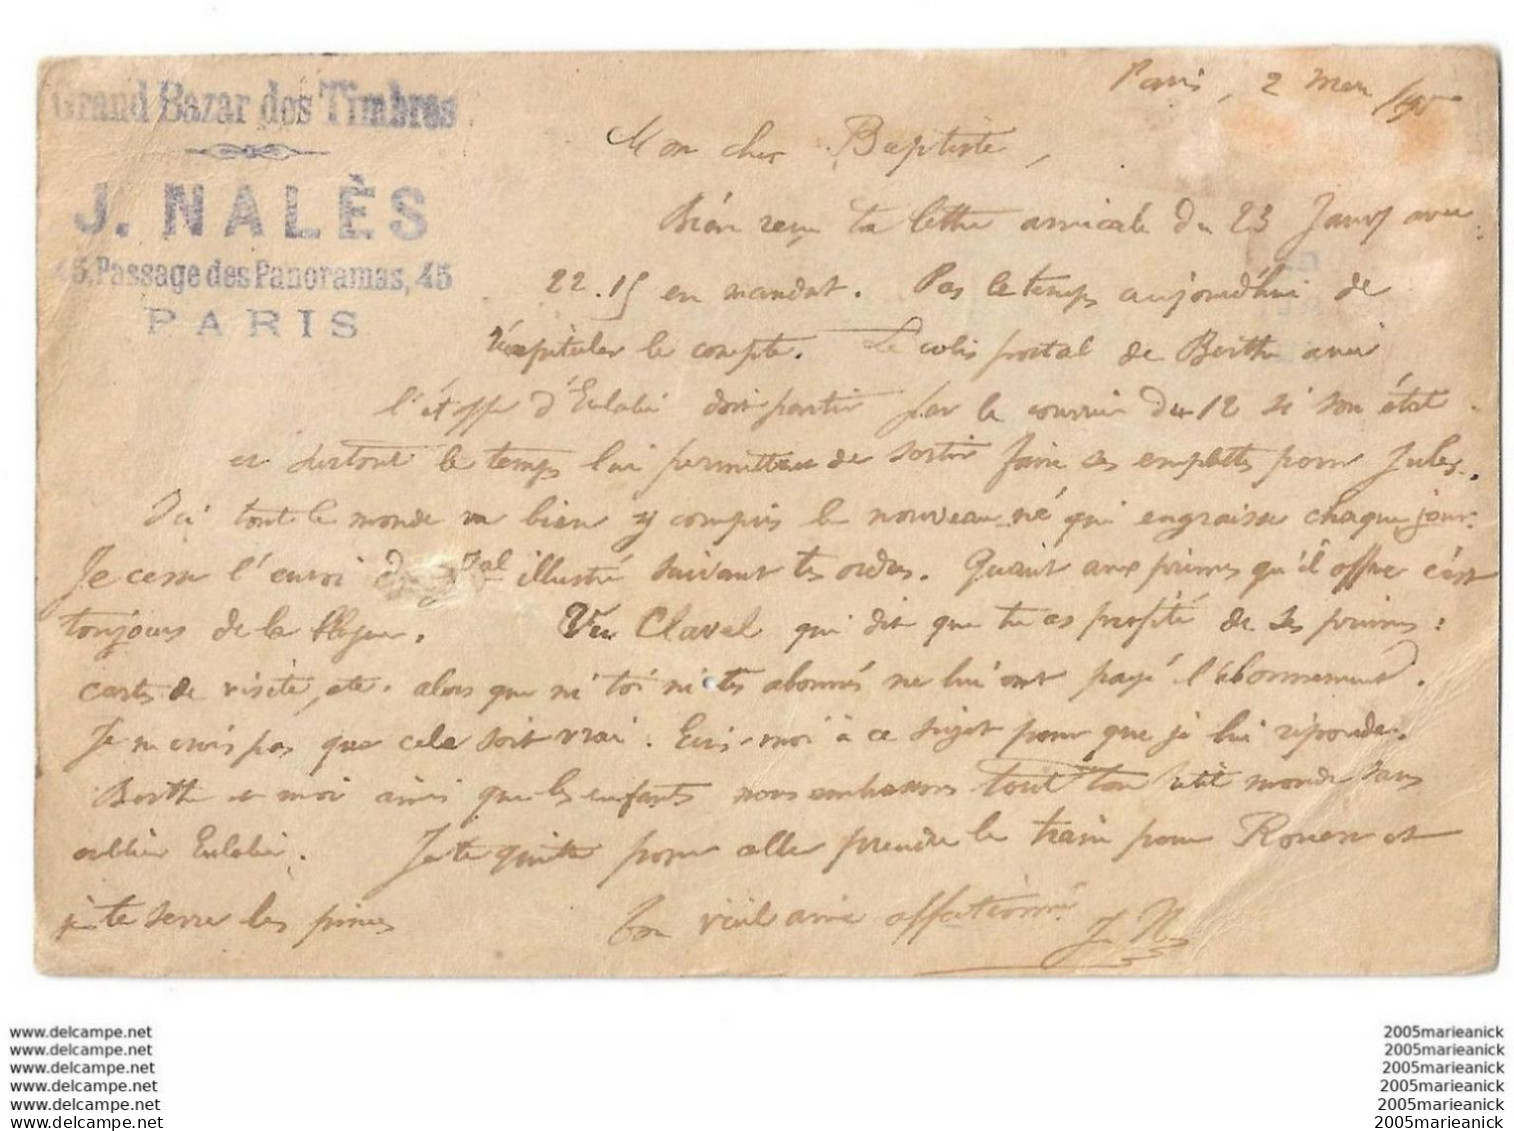 Grand Bazar des Timbres
J. NALÈS
45, Passage des Panoramas, 45
PARIS
Paris, 2 Mars /95
Mon cher Baptiste,
Bien reçu ta lettre amicale du 23 Janv avec
22.15 en mandat. Pas le temps aujourd'hui de
récapituler le compte. Le colis postal de Berthe avec
l'étoffe d'Eulalie doit partir par le courrier du 12 si son état
et surtout le temps lui permettent de sortir faire ses emplettes pour Jules.
Ici tout le monde va bien y compris le nouveau né qui engraisse chaque jour.
Je cesse l'envoi du Jal illustré suivant tes ordres. Quant aux primes qu'il offre c'est
toujours de la blague. Vu Clavel qui dit que tu as profité de ses primes:
cartes de visite, etc. alors que ni toi ni tes abonnés ne lui ont payé l'abonnement.
Je ne crois pas que cela soit vrai. Ecris-moi à ce sujet pour que je lui réponde.
Berthe et moi ainsi que les enfants nous embrassons tout ton petit monde sans
oublier Eulalie. Je te quitte pour aller prendre le train pour Rouen et
je te serre les pinces
Ton vieil ami affectionné
J. N
www.delcampe.net
www.delcampe.net
www.delcampe.net
www.delcampe.net
www.delcampe.net
www.delcampe.net
2005marieanick
2005marieanick
2005marieanick
2005marieanick
2005marieanick
2005marieanick